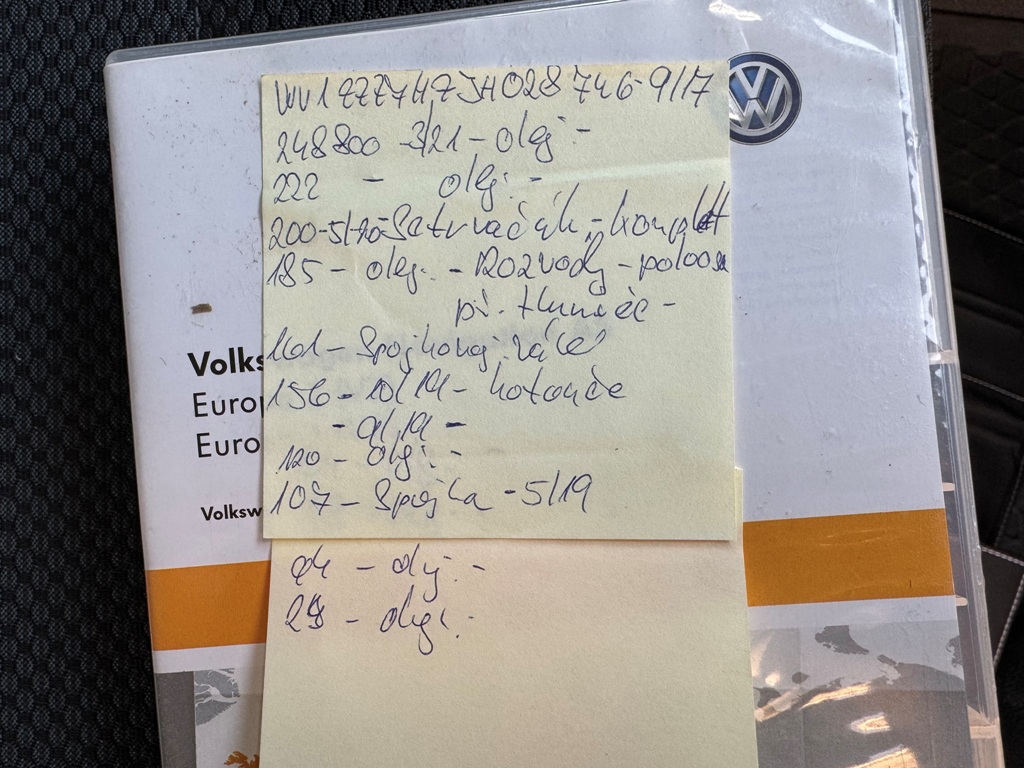 WV1ZZZ7HZJH028746-9/17
248800 -3/21 - olej: -
222 - olej: -
200-5/20-Setrvačník - komplet
185 - olej: - Rozvody - poloosa
př. tlumiče -
161 - Spojkovej válec
156 - 10/19 - kotouče
- 9/19 -
120 - olej: -
107 - Spojka - 5/19
94 - olej: -
28 - olej:
Volks
Europ
Euro
Volksw